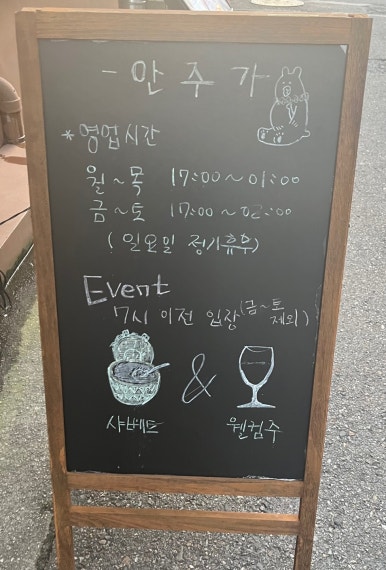 - 안 주 가
* 영업시간
월 ~ 목 17:00 ~ 01:00
금 ~ 토 17:00 ~ 02:00
( 일요일 정기휴무)
Event
7시 이전 입장 (금~토 제외)
샤베트 & 웰컴주